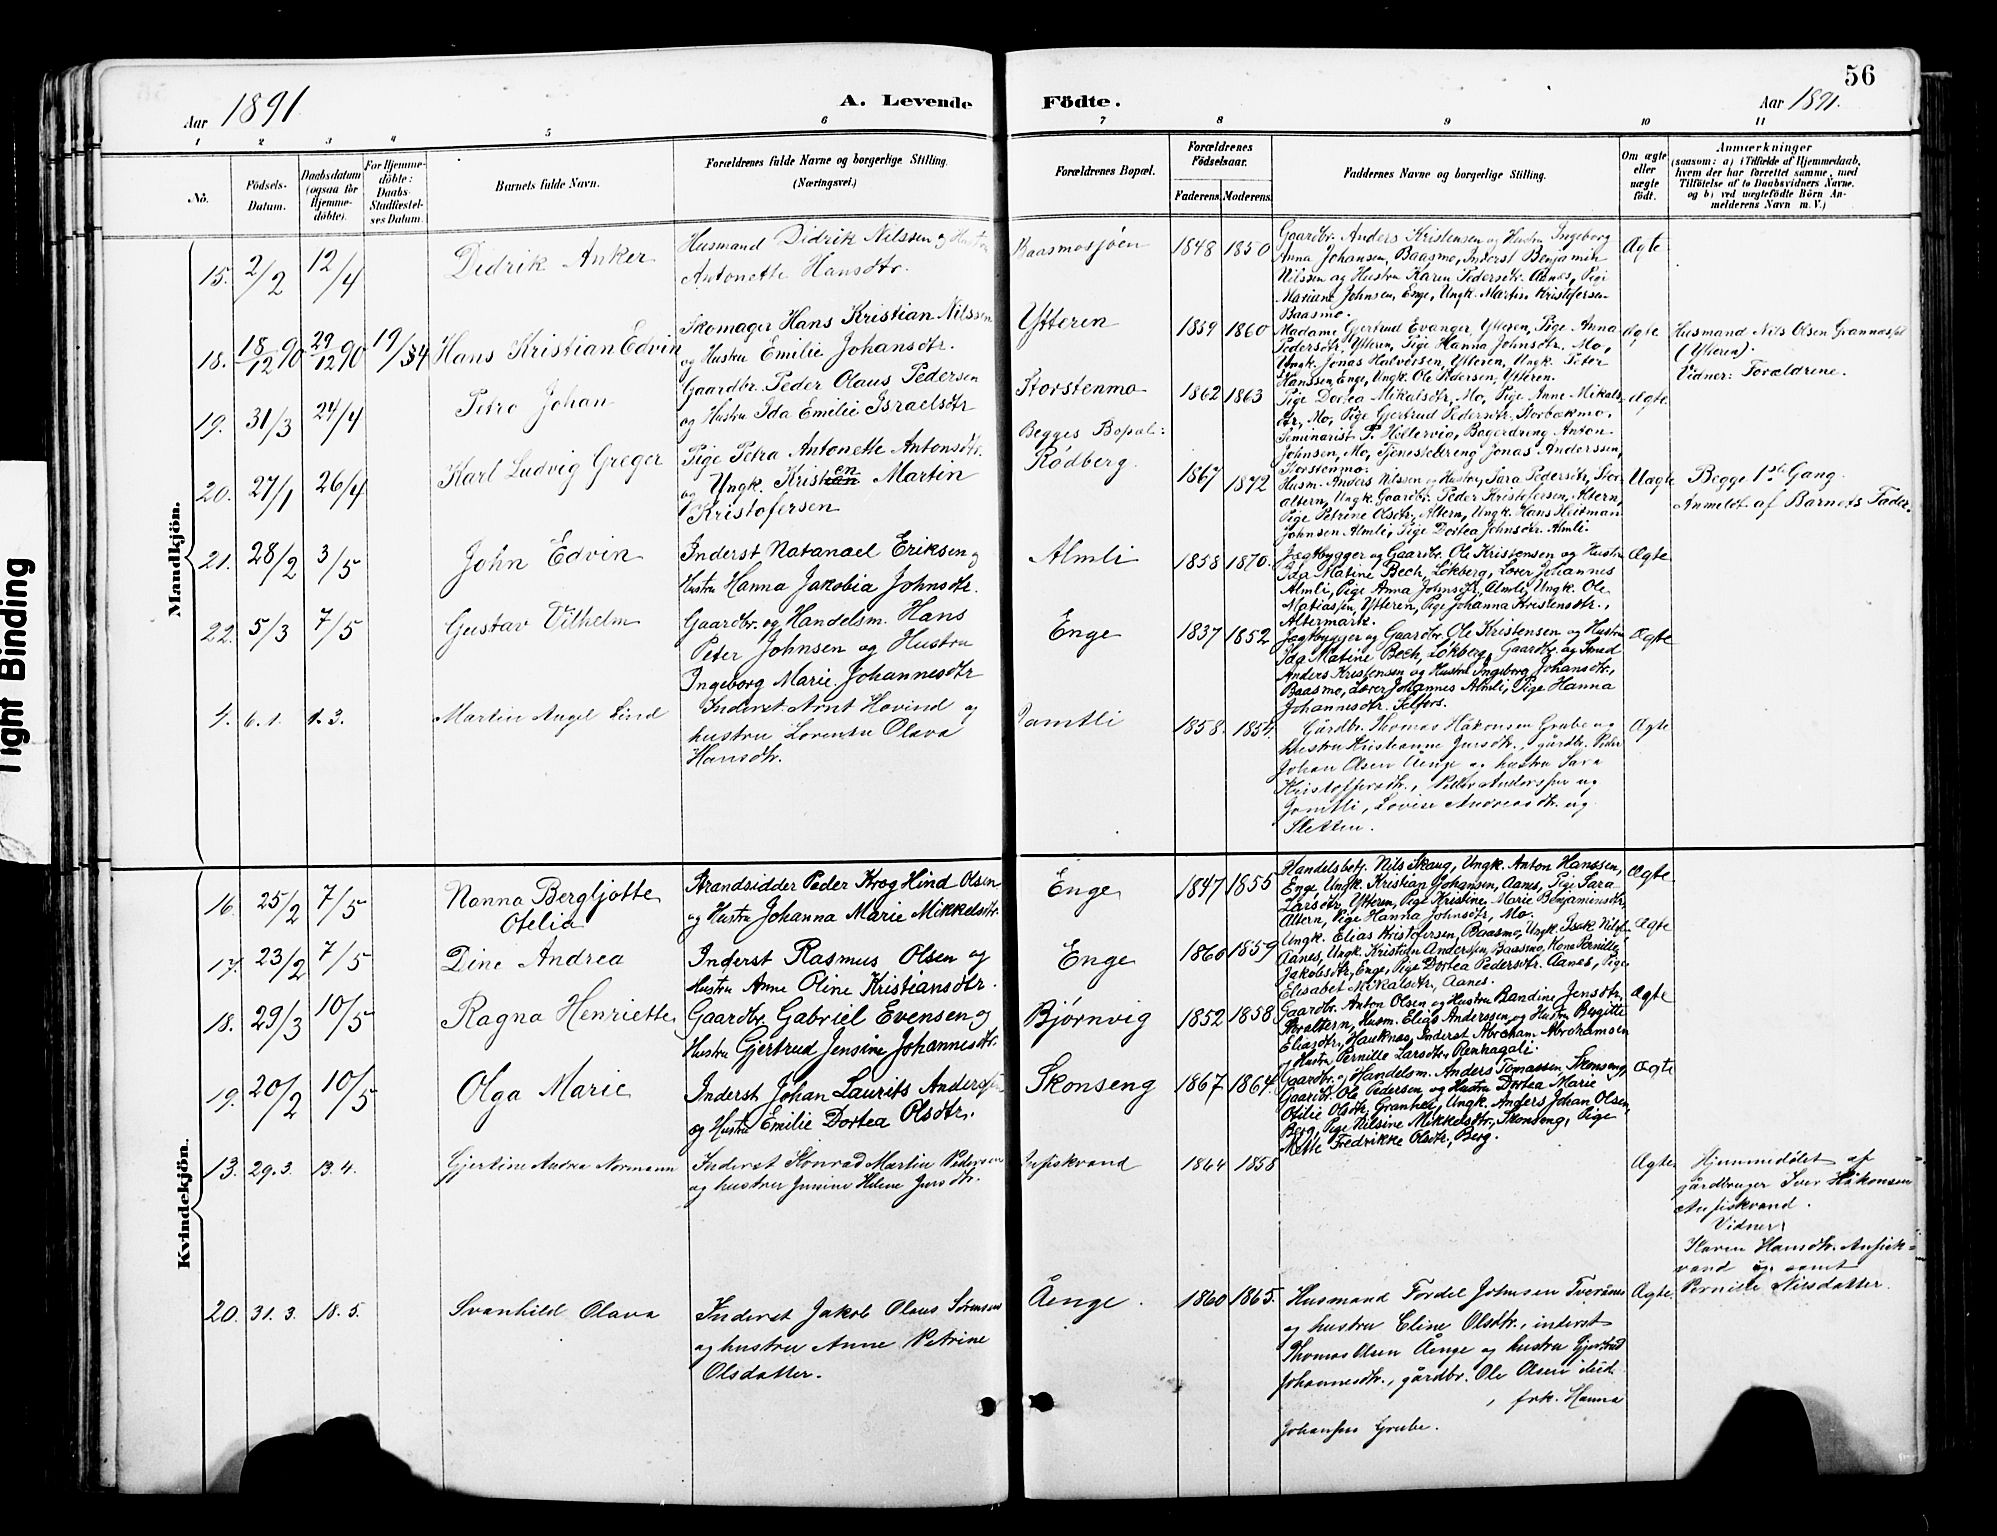 56
Aar 1891
A. Levende Födte.
Aar 1891.
1 2 3 4 5 6 7 8 9 10 11
No.
Födsels-Datum.
Daabsdatum (ogsaa for Hjemme-döbte).
For Hjemme-döbte: Daabs-Stadfæstel-ses Datum.
Barnets fulde Navn.
Forældrenes fulde Navne og borgerlige Stilling. (Næringsvei.)
Forældrenes Bopæl.
Forældrenes Födselsaar.
Faderens. Moderens.
Faddernes Navne og borgerlige Stilling.
Om ægte eller uægte födt.
Anmærkninger
(saasom: a) i Tilfælde af Hjemmedaab, hvem der har forrettet samme, med Tilföielse af to Daabsvidners Navne, og b) ved uægtefödte Börn An-melderens Navn m. V.)
Tight Binding
Mandkjön.
15. 2/2 12/4 Didrik Anker
Husmand Didrik Nilssen og Hustru
Antonette Hansdtr.
Baasmosjøen 1848 1850
Gaardbr. Anders Kristensen og Hustru Ingeborg
Anna Johansen, Baasmo, Inderst Benjamin
Nilssen og Hustru Karen Pedersdtr. Aanes, Pige
Mariene Johnsen, Enge, Ungk. Martin Kristofersen
Baasmo.
Ægte
18. 18/12 90 29/12 90 19/3 4 Hans Kristian Edvin
Skomager Hans Kristian Nilssen
og Hustru Emilie Johansdtr.
Ytteren 1859 1860
Madame Gjertrud Evanger, Ytteren, Pige Anna
Pedersdtr, Ytteren, Pige Hanna Johnsdtr, Mo,
Ungk. Jonas Halvorsen, Ytteren, Ungk. Peter
Hanssen, Enge, Ungk. Ole Pedersen, Ytteren.
Ægte
Husmand Nils Olsen
(Ytteren).
Vidner: Forældrene.
19. 31/3 24/4 Petro Johan
Gaardbr. Peder Olaus Pedersen
og Hustru Ida Emilie Israelsdtr
Storstenmo 1862 1863
Pige Dortea Mikalsdtr, Mo, Pige Anne Mikals-
dtr, Mo, Pige Gjertrud Pedersdtr. Storbækmo,
Seminarist P. Hellervio, Bagerdreng Anton
Johnsen, Mo, Tjenestedreng Jonas Anderssen,
Storstenmo.
Ægte
20. 27/1 26/4 Karl Ludvig Greger
Pige Petra Antonette Antonsdtr.
og Ungk. Kristen Martin
Kristofersen
Begges Bopæl:
Rødberg. 1867 1872
Husm. Anders Nilsen og Hustru Sara Pedersdtr, Stor-
altern, Ungk. Gaardbr. Peder Kristofersen, Altern,
Pige Petrine Olsdtr, Altern, Ungk. Hans Heitman
Johnsen Almli, Pige Dortea Johnsdtr. Almli.
Uægte
Begge 1ste Gang.
Anmeldt af Barnets Fader.
21. 28/2 3/5 John Edvin
Inderst Natanael Eriksen og
Hustru Hanna Jakobia Johnsdtr.
Almli 1858 1870.
Jægtbygger og Gaardbr. Ole Kristensen og Hustru
Ida Matine Bech, Lökberg, Lærer Johannes
Almli, Pige Anna Johnsdtr, Almli, Ungk. Ole
Matiassen, Ytteren, Pige Johanna Kristensdtr.,
Altermark.
Ægte
22. 5/3 7/5 Gustav Vilhelm
Gaardbr. og Handelsm. Hans
Peter Johnsen og Hustru
Ingeborg Marie Johannesdtr
Enge 1837 1852
Jægtbygger og Gaardbr. Ole Kristensen og Hustru
Ida Matine Bech, Lökberg, Gaardbr. og Smed
Anders Kristensen og Hustru Ingeborg Johansdtr,
Baasmo, Lærer Johannes Almli, Pige Hanna
Johannesdtr. Selfors.
Ægte
4. 6. 1. 1. 3. Martin Angel Lind
Inderst Arnt Hovind og
hustru Lorentse Olava
Hansdtr.
Jamtli 1858. 1854.
Gårdbr. Thomas Håkonsen Grube og
hustru Kristianne Jursdtr., gårdbr. Peder
Johan Olsen Aenge og hustru Sara
Kristoffersdtr., Petter Anderssen og
Jamtli, Lovise Andreasdtr. og
Sletten.
Ægte
Kvindekjön.
16. 25/2 7/5 Nanna Bergljotte
Ofelia
Strandsidder Peder Krog Hind Olsen
og Hustru Johanna Marie Mikkelsdtr.
Enge 1847 1855
Handelsbetj. Nils Skaug, Ungk. Anton Hanssen,
Enge, Ungk. Kristian Johansen, Aanes, Pige Sara
Larsdtr, Ytteren, Pige Kristine Marie Benjaminsdtr,
Altern, Pige Hanna Johnsdtr, Mo.
Ægte
17. 23/2 7/5 Dine Andrea
Inderst Rasmus Olsen og
Hustru Anne Oline Kristiansdtr.
Enge 1860 1859
Ungk. Elias Kristofersen, Baasmo, Ungk. Isak
Aanes, Ungk. Kristian Andersen, Baasmo, Kone Pernille
Jakobsdtr, Enge, Pige Dortea Pedersdtr. Aanes, Pige
Elisabet Mikalsdtr, Aanes.
Ægte
18. 29/3 10/5 Ragna Henriette
Gaardbr. Gabriel Evensen og
Hustru Gjertrud Jensine Johannesdtr.
Bjørnvig 1852 1858
Gaardbr. Anton Olsen og Hustru Bandine Jensdtr,
Storaltern, Husm. Elias Anderssen og Hustru Bergitte
Eliasdtr, Hauknes, Inderst Abraham Abrahamsen
og Hustru Pernille Larsdtr, Renhagali.
Ægte
19. 20/2 10/5 Olga Marie
Inderst Johan Laurits Anderssen
og Hustru Emilie Dortea Olsdtr.
Skonseng 1867 1864.
Gaardbr. og Handelsm. Anders Tomassen, Skonseng,
Gaardbr. Ole Pedersen og Hustru Dortea Marie
Ofilie Olsdtr, Granhei, Ungk. Anders Johan Olsen,
Berg, Pige Nilsine Mikkelsdtr, Skonseng, Pige
Mette Fredrikke Olsdtr, Berg.
Ægte
13. 29. 3. 13. 4. Gjertine Andrea Normann
Inderst Konrad Martin Pedersen
og hustru Jensine Helene Jursdtr.
1864 1858
Ægte
Hjemmedøbt af
gårdbruger Iver Håkonsen
Anfiskvand.
Vidner:
Karen Hansdtr. Anfisk-
vand og samt
Pernille Nilsdatter.
20. 31. 3. 18. 5. Svanhild Olava
Inderst Jakob Olaus Sørensen
og hustru Anne Petrine
Olsdatter.
Åenge. 1860 1865.
Husmand Fordel Johnsen Tverånes
og hustru Eline Olsdtr., inderst
Thomas Olsen Åenge og hustru Gjertrud
Johannesdtr., gårdbr. Ole Olsen ibid.
, frk. Hanna
Johansen Grube.
Ægte.